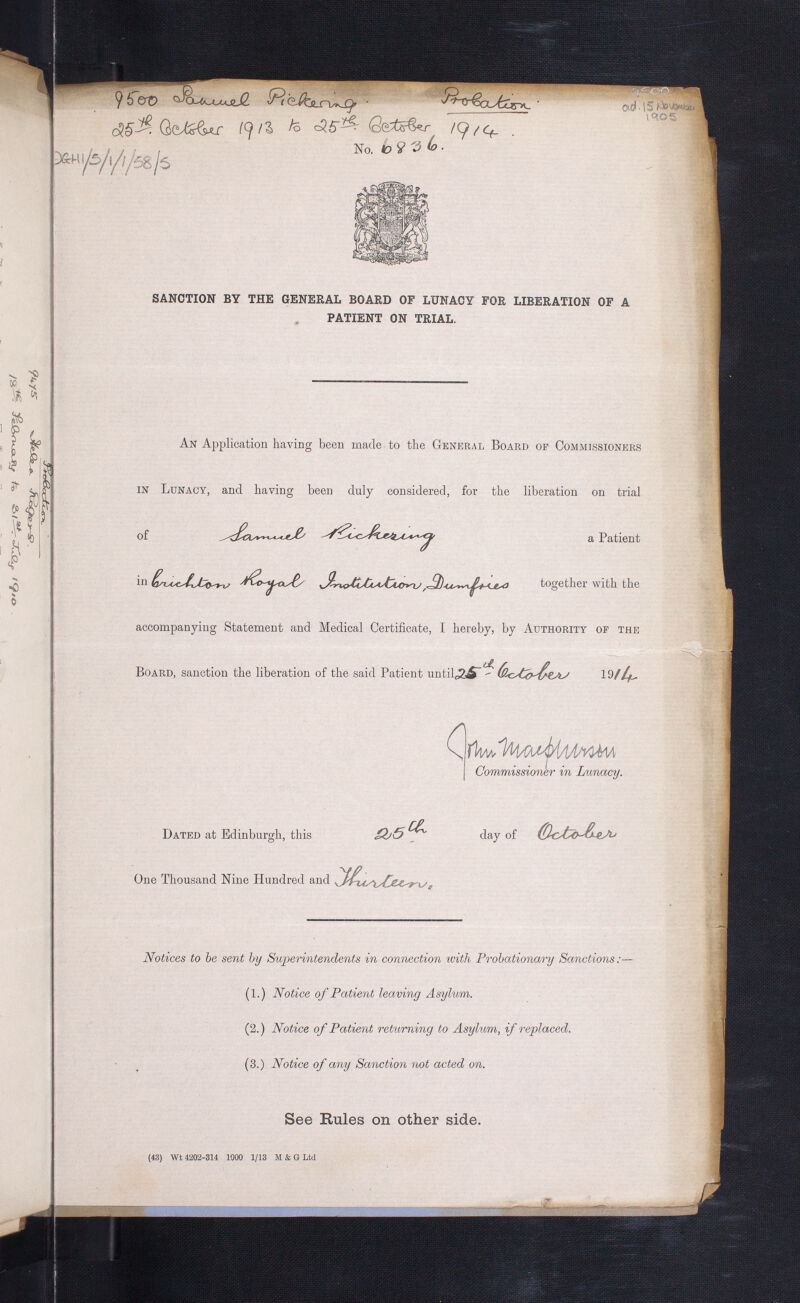 9500 Samuel Pickering. Probation.
25th. October 1913 to 25th. October 1914.
9500
ad. 15 November
1905
No. 6836.
DGH1/5/1/1/58/5
SANCTION BY THE GENERAL BOARD OF LUNACY FOR LIBERATION OF A
PATIENT ON TRIAL.
AN Application having been made to the GENERAL BOARD OF COMMISSIONERS
IN LUNACY, and having been duly considered, for the liberation on trial
of Samuel Pickering a Patient
in Crichton Royal Institution, Dumfries together with the
accompanying Statement and Medical Certificate, I hereby, by AUTHORITY OF THE
BOARD, sanction the liberation of the said Patient until 25th October 1914
John Macpherson
Commissioner in Lunacy.
DATED at Edinburgh, this 25th day of October
One Thousand Nine Hundred and Thirteen.
Notices to be sent by Superintendents in connection with Probationary Sanctions:—
(1.) Notice of Patient leaving Asylum.
(2.) Notice of Patient returning to Asylum, if replaced.
(3.) Notice of any Sanction not acted on.
See Rules on other side.
(43) Wt 4202-314 1000 1/13 M & G Ltd
Probation.
9475 Rogers.
18th February to 31st July 1910